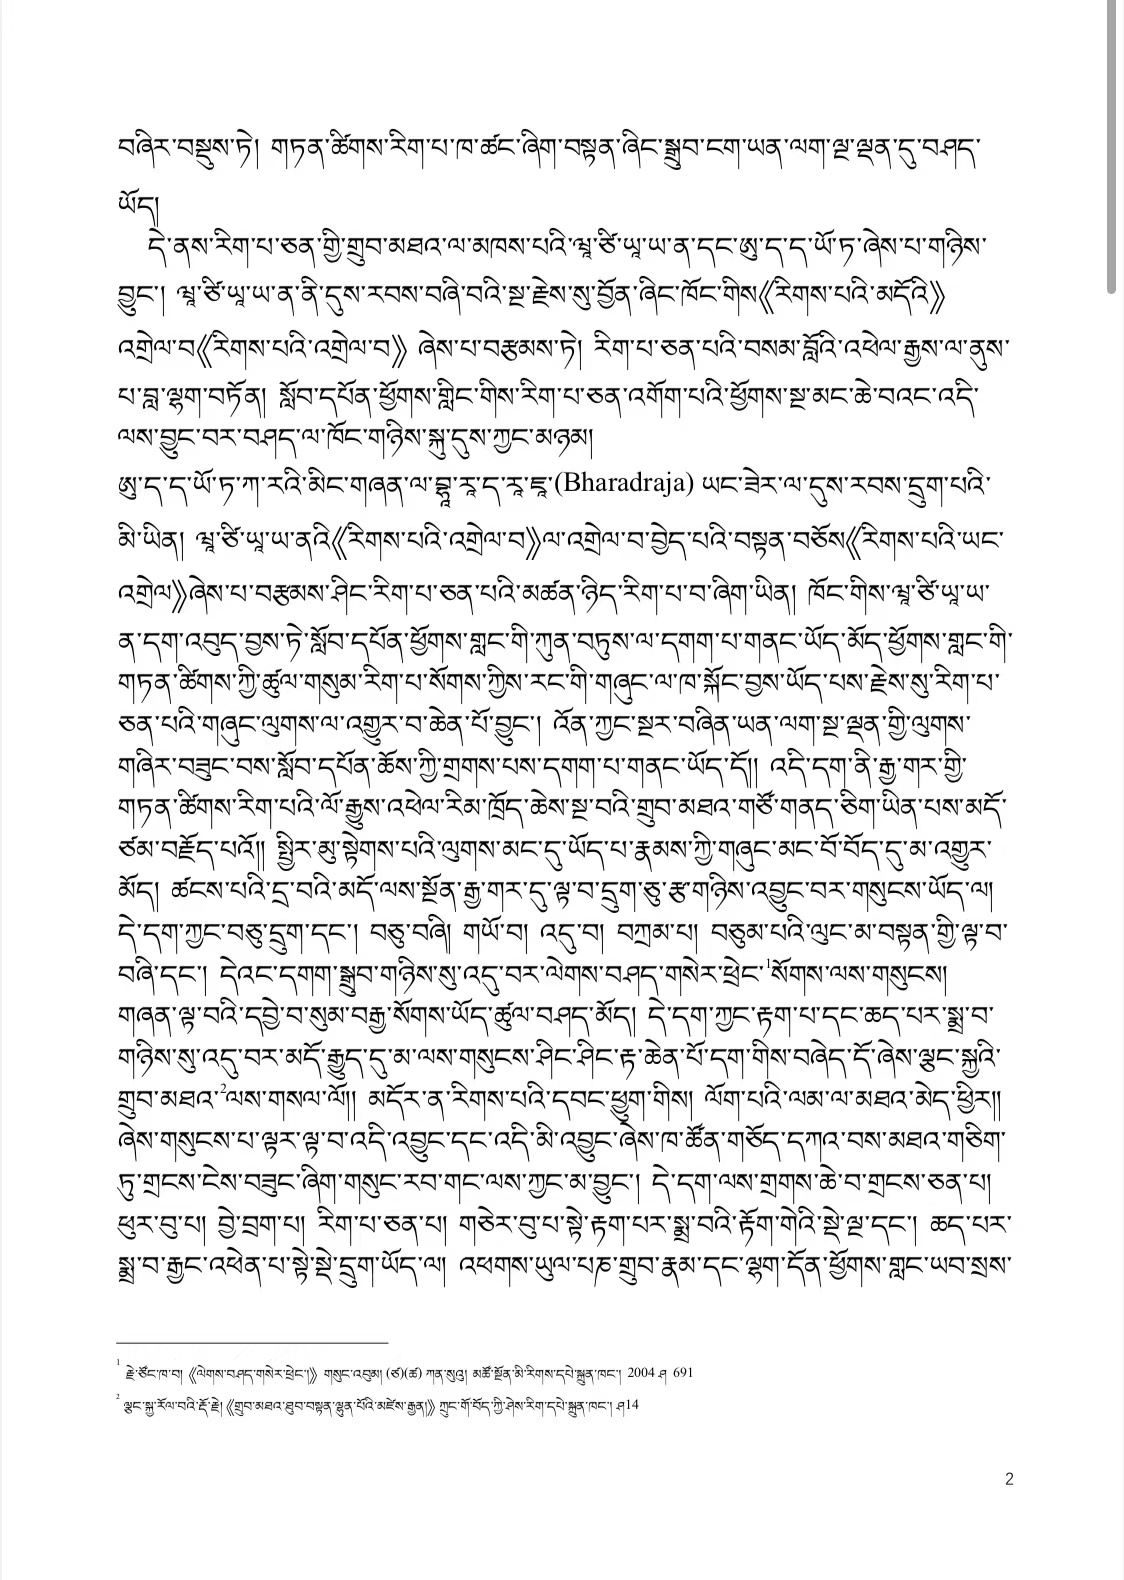 བཞིར་བསྡུས་ཏེ། གཏན་ཚིགས་རིག་པ་ཁ་ཚང་ཞིག་བསྟན་ཞིང་སྒྲུབ་ངག་ཡན་ལག་ལྔ་ལྡན་དུ་བཤད་
ཡོད།
དེ་ནས་རིག་པ་ཅན་གྱི་གྲུབ་མཐའ་ལ་མཁས་པའི་ཝཱ་ཙི་ཡཱ་ཡ་ན་དང་ཨུ་ད་ད་ཡོ་ཏ་ཞེས་པ་གཉིས་
བྱུང་། ཝཱ་ཙི་ཡཱ་ཡ་ན་ནི་དུས་རབས་བཞི་བའི་སྔ་རྗེས་སུ་བྱོན་ཞིང་ཁོང་གིས《རིགས་པའི་མདོའི》
འགྲེལ་བ《རིགས་པའི་འགྲེལ་བ》 ཞེས་པ་བརྩམས་ཏེ། རིག་པ་ཅན་པའི་བསམ་བློའི་འཕེལ་རྒྱས་ལ་ནུས་
པ་བླ་ལྷག་བཏོན། སློབ་དཔོན་ཕྱོགས་གླིང་གིས་རིག་པ་ཅན་འགོག་པའི་ཕྱོགས་སྔ་མང་ཆེ་བའང་འདི་
ལས་བྱུང་བར་བཤད་ལ་ཁོང་གཉིས་སྐུ་དུས་ཀྱང་མཉམ།
ཨུ་ད་ད་ཡོ་ཏ་ཀ་རའི་མིང་གཞན་ལ་བྷཱ་རཱ་ད་རཱ་ཛཱ་(Bharadraja) ཡང་ཟེར་ལ་དུས་རབས་དྲུག་པའི་
མི་ཡིན། ཝཱ་ཙི་ཡཱ་ཡ་ནའི《རིགས་པའི་འགྲེལ་བ》ལ་འགྲེལ་བ་བྱེད་པའི་བསྟན་བཅོས《རིགས་པའི་ཡང་
འགྲེལ》ཞེས་པ་བརྩམས་ཤིང་རིག་པ་ཅན་པའི་མཚན་ཉིད་རིག་པ་བ་ཞིག་ཡིན། ཁོང་གིས་ཝཱ་ཙི་ཡཱ་ཡ་
ན་དག་འབུད་བྱས་ཏེ་སློབ་དཔོན་ཕྱོགས་གླང་གི་ཀུན་བཏུས་ལ་དགག་པ་གནང་ཡོད་མོད་ཕྱོགས་གླང་གི་
གཏན་ཚིགས་ཀྱི་ཚུལ་གསུམ་རིག་པ་སོགས་ཀྱིས་རང་གི་གཞུང་ལ་ཁ་སྐོང་བྱས་ཡོད་པས་རྗེས་སུ་རིག་པ་
ཅན་པའི་གཞུང་ལུགས་ལ་འགྱུར་བ་ཆེན་པོ་བྱུང་། འོན་ཀྱང་སྔར་བཞིན་ཡན་ལག་སྔ་ལྡན་གྱི་ལུགས་
གཞིར་བཟུང་བས་སློབ་དཔོན་ཆོས་ཀྱི་གྲགས་པས་དགག་པ་གནང་ཡོད་དོ།། འདི་དག་ནི་རྒྱ་གར་གྱི་
གཏན་ཚིགས་རིག་པའི་ལོ་རྒྱུས་འཕེལ་རིམ་ཁྲོད་ཆེས་སྔ་བའི་གྲུབ་མཐའ་གཙོ་གནད་ཅིག་ཡིན་པས་མདོ་
ཙམ་བརྗོད་པའོ།། སྤྱིར་མུ་སྟེགས་པའི་ལུགས་མང་དུ་ཡོད་པ་རྣམས་ཀྱི་གཞུང་མང་པོ་བོད་དུ་མ་འགྱུར་
མོད། ཚངས་པའི་དྲ་བའི་མདོ་ལས་སྔོན་རྒྱ་གར་དུ་ལྟ་བ་དྲུག་ཅུ་རྩ་གཉིས་འབྱུང་བར་གསུངས་ཡོད་ལ།
དེ་དག་ཀྱང་བཅུ་དྲུག་དང་། བཅུ་བཞི། གཡོ་བ། འདུ་བ། བཀྲམ་པ། བཅུམ་པའི་ལུང་མ་བསྟན་གྱི་ལྟ་བ་
བཞི་དང་། དེའང་དགག་སྒྲུབ་གཉིས་སུ་འདུ་བར་ལེགས་བཤད་གསེར་ཕྲེང་¹སོགས་ལས་གསུངས།
གཞན་ལྟ་བའི་དབྱེ་བ་སུམ་བརྒྱ་སོགས་ཡོད་ཚུལ་བཤད་མོད། དེ་དག་ཀྱང་རྟག་པ་དང་ཆད་པར་སྨྲ་བ་
གཉིས་སུ་འདུ་བར་མདོ་རྒྱུད་དུ་མ་ལས་གསུངས་ཤིང་ཤིང་རྟ་ཆེན་པོ་དག་གིས་བཞེད་དོ་ཞེས་ལྕང་སྐྱའི་
གྲུབ་མཐའ་²ལས་གསལ་ལོ།། མདོར་ན་རིགས་པའི་དབང་ཕྱུག་གིས། ལོག་པའི་ལམ་ལ་མཐའ་མེད་ཕྱིར།།
ཞེས་གསུངས་པ་ལྟར་ལྟ་བ་འདི་འབྱུང་དང་འདི་མི་འབྱུང་ཞེས་ཁ་ཚོན་གཅོད་དཀའ་བས་མཐའ་གཅིག་
ཏུ་གྲངས་ངེས་བཟུང་ཞིག་གསུང་རབ་གང་ལས་ཀྱང་མ་བྱུང་། དེ་དག་ལས་གྲགས་ཆེ་བ་གྲངས་ཅན་པ།
ཕུར་བུ་པ། བྱེ་བྲག་པ། རིག་པ་ཅན་པ། གཅེར་བུ་པ་སྟེ་རྟག་པར་སྨྲ་བའི་རྟོག་གེའི་སྡེ་ལྔ་དང་། ཆད་པར་
སྨྲ་བ་རྒྱང་འཕེན་པ་སྟེ་སྡེ་དྲུག་ཡོད་ལ། འཕགས་ཡུལ་པཎ་གྲུབ་རྣམ་དང་ལྷག་དོན་ཕྱོགས་གླང་ཡབ་སྲས་
¹ རྗེ་ཙོང་ཁ་བ། 《ལེགས་བཤད་གསེར་ཕྲེང་།》 གསུང་འབུམ། (ཙ)(ཚ) ཀན་སུའུ། མཚོ་སྔོན་མི་རིགས་དཔེ་སྐྲུན་ཁང་། 2004 ཤ 691
² ལྕང་སྐྱ་རོལ་བའི་རྡོ་རྗེ། 《གྲུབ་མཐའ་ཐུབ་བསྟན་ལྷུན་པོའི་མཛེས་རྒྱན།》 ཀྲུང་གོ་བོད་ཀྱི་ཤེས་རིག་དཔེ་སྐྲུན་ཁང་། ཤ14
2